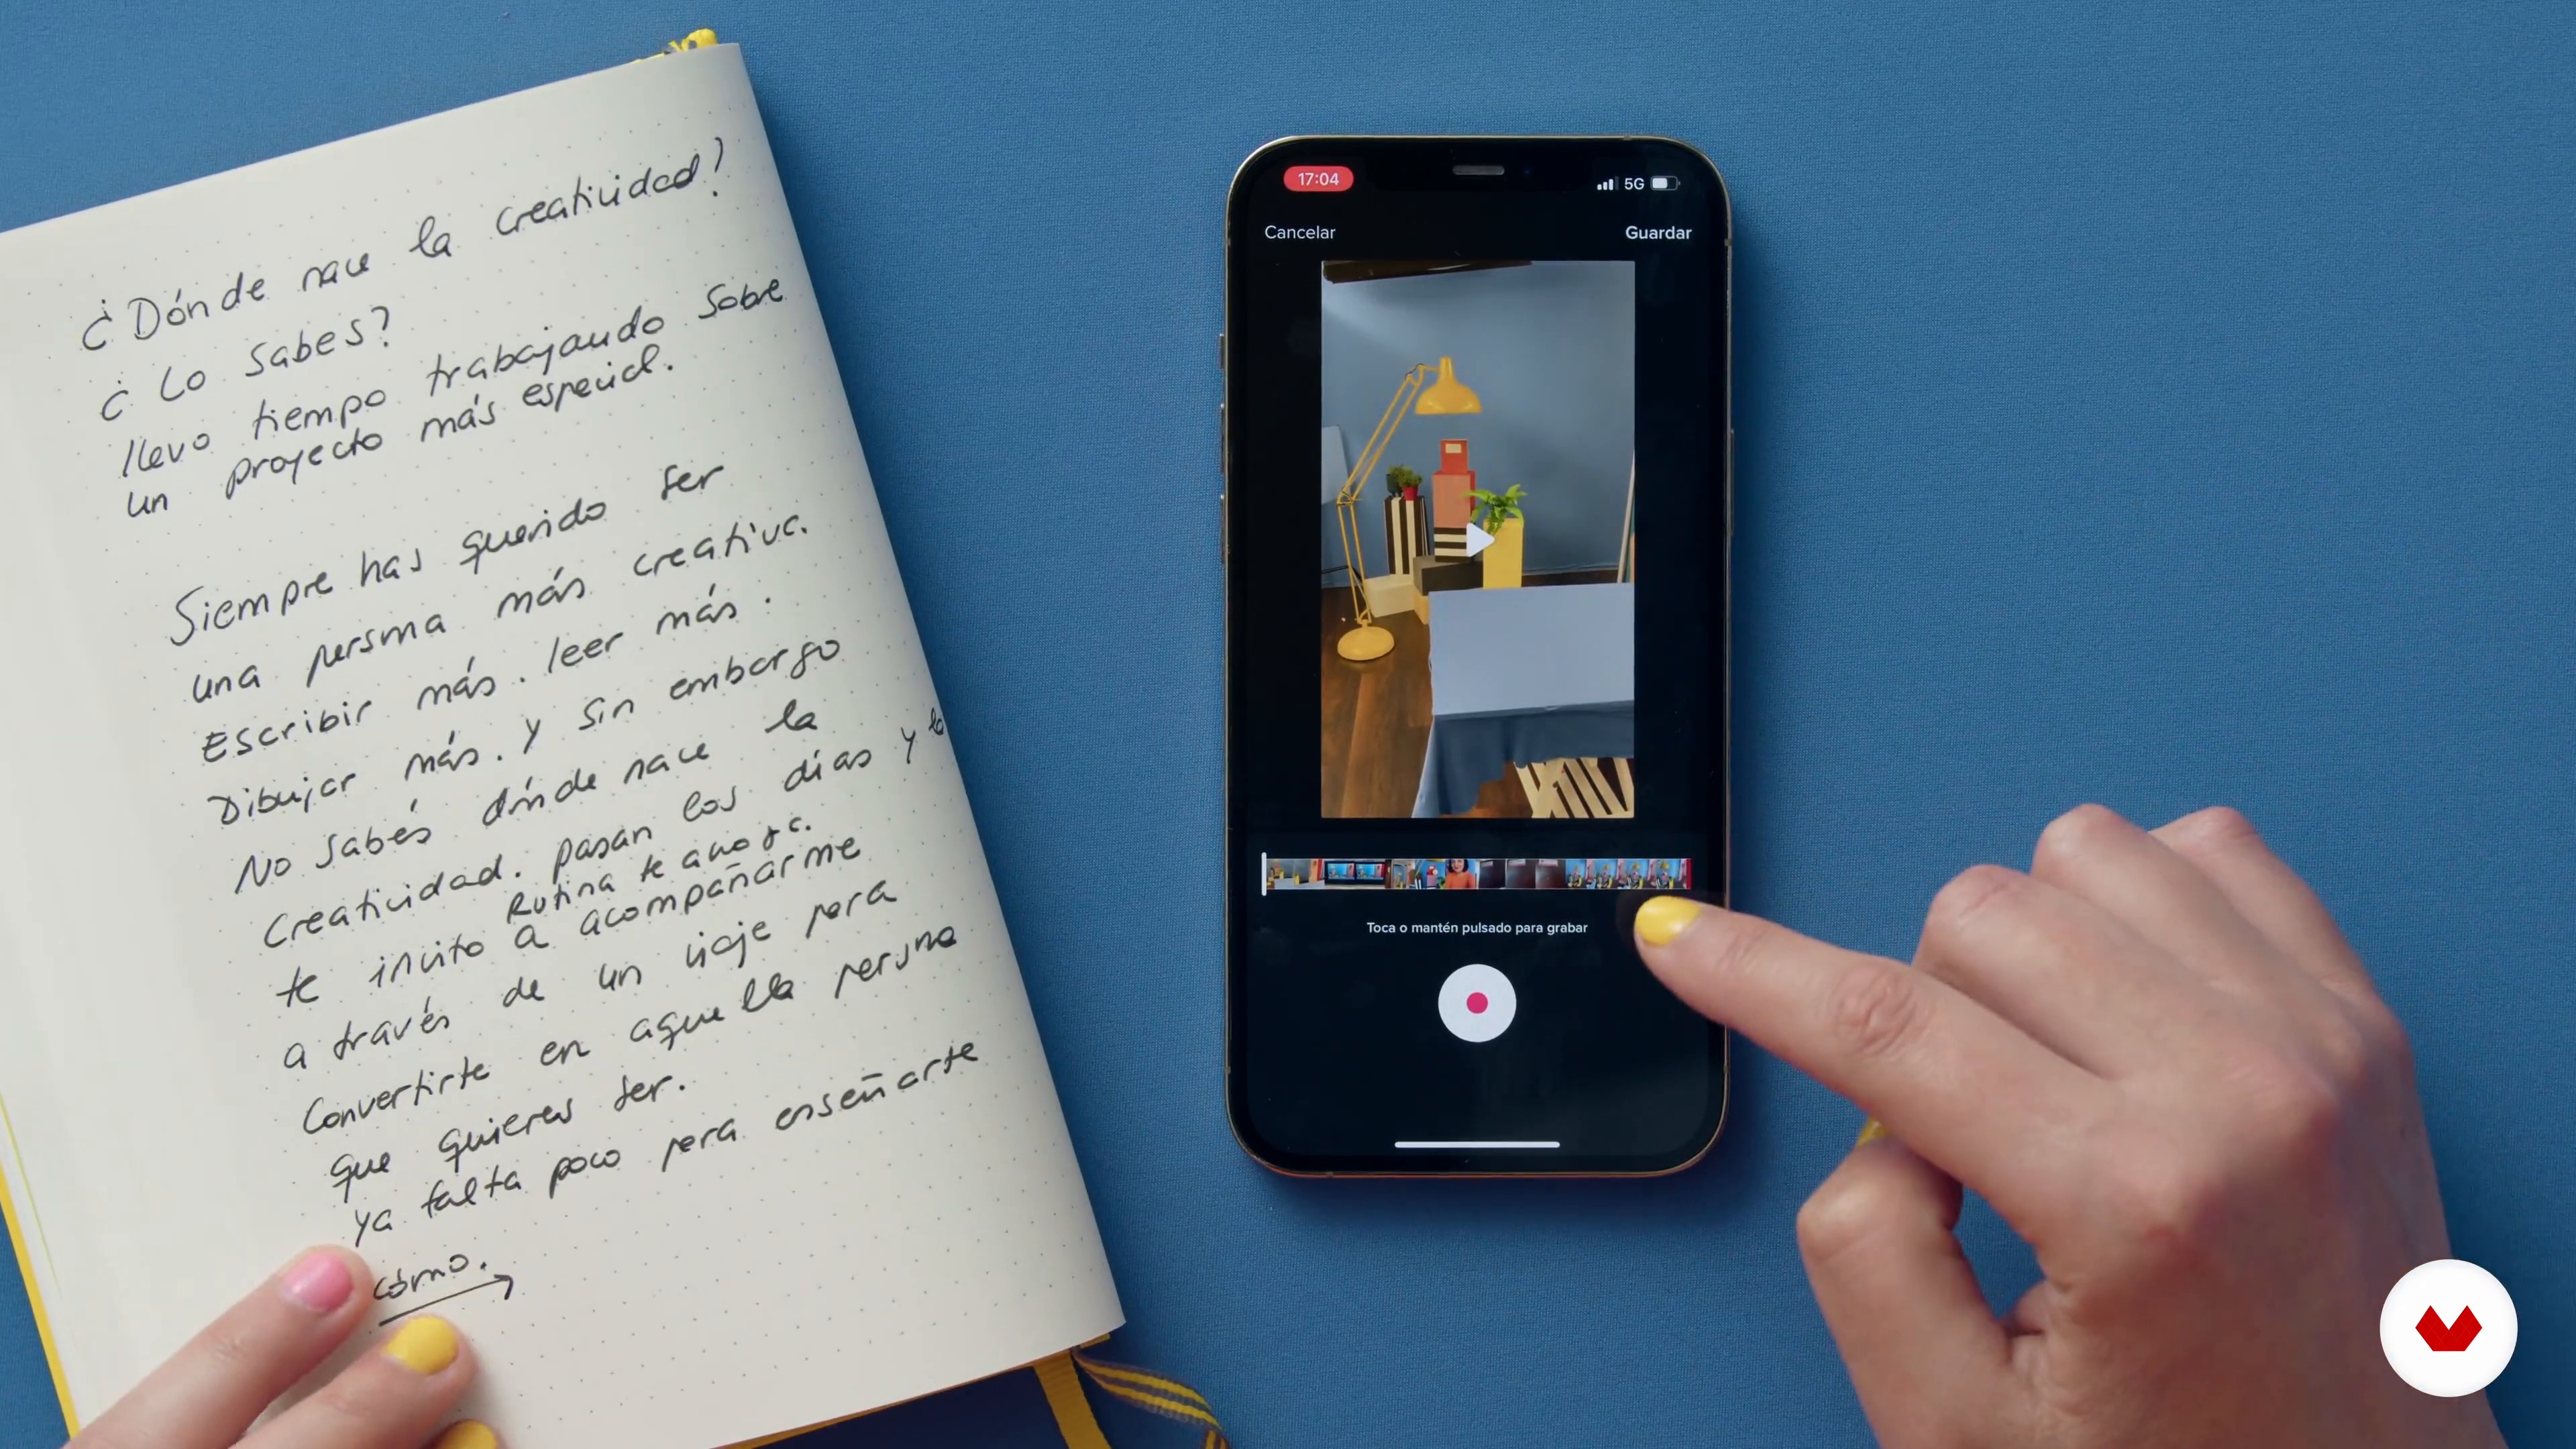 ¿Dónde nace la creatividad?
¿Lo sabes?
llevo tiempo trabajando sobre
un proyecto más especial.
Siempre has querido ser
una persona más creativa.
Escribir más. leer más.
Dibujar más. Y sin embargo
No sabés dónde nace la
Creatividad. pasan los días y la
Rutina te
te invito a acompañarme
a través de un viaje para
Convertirte en aquella persona
que quieres ser.
ya falta poco para enseñarte
cómo.
17:04
5G
Cancelar
Guardar
Toca o mantén pulsado para grabar